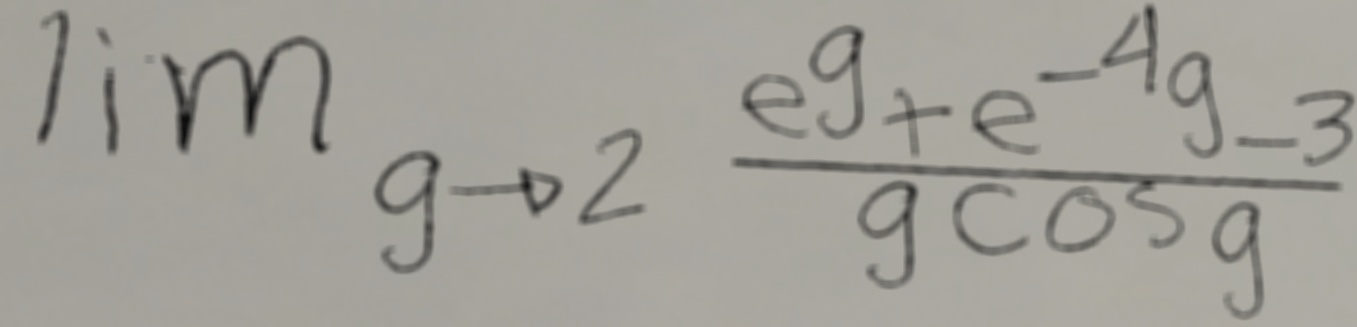 lim g→2 (e^g + e^{-4g} - 3) / (g cos g)